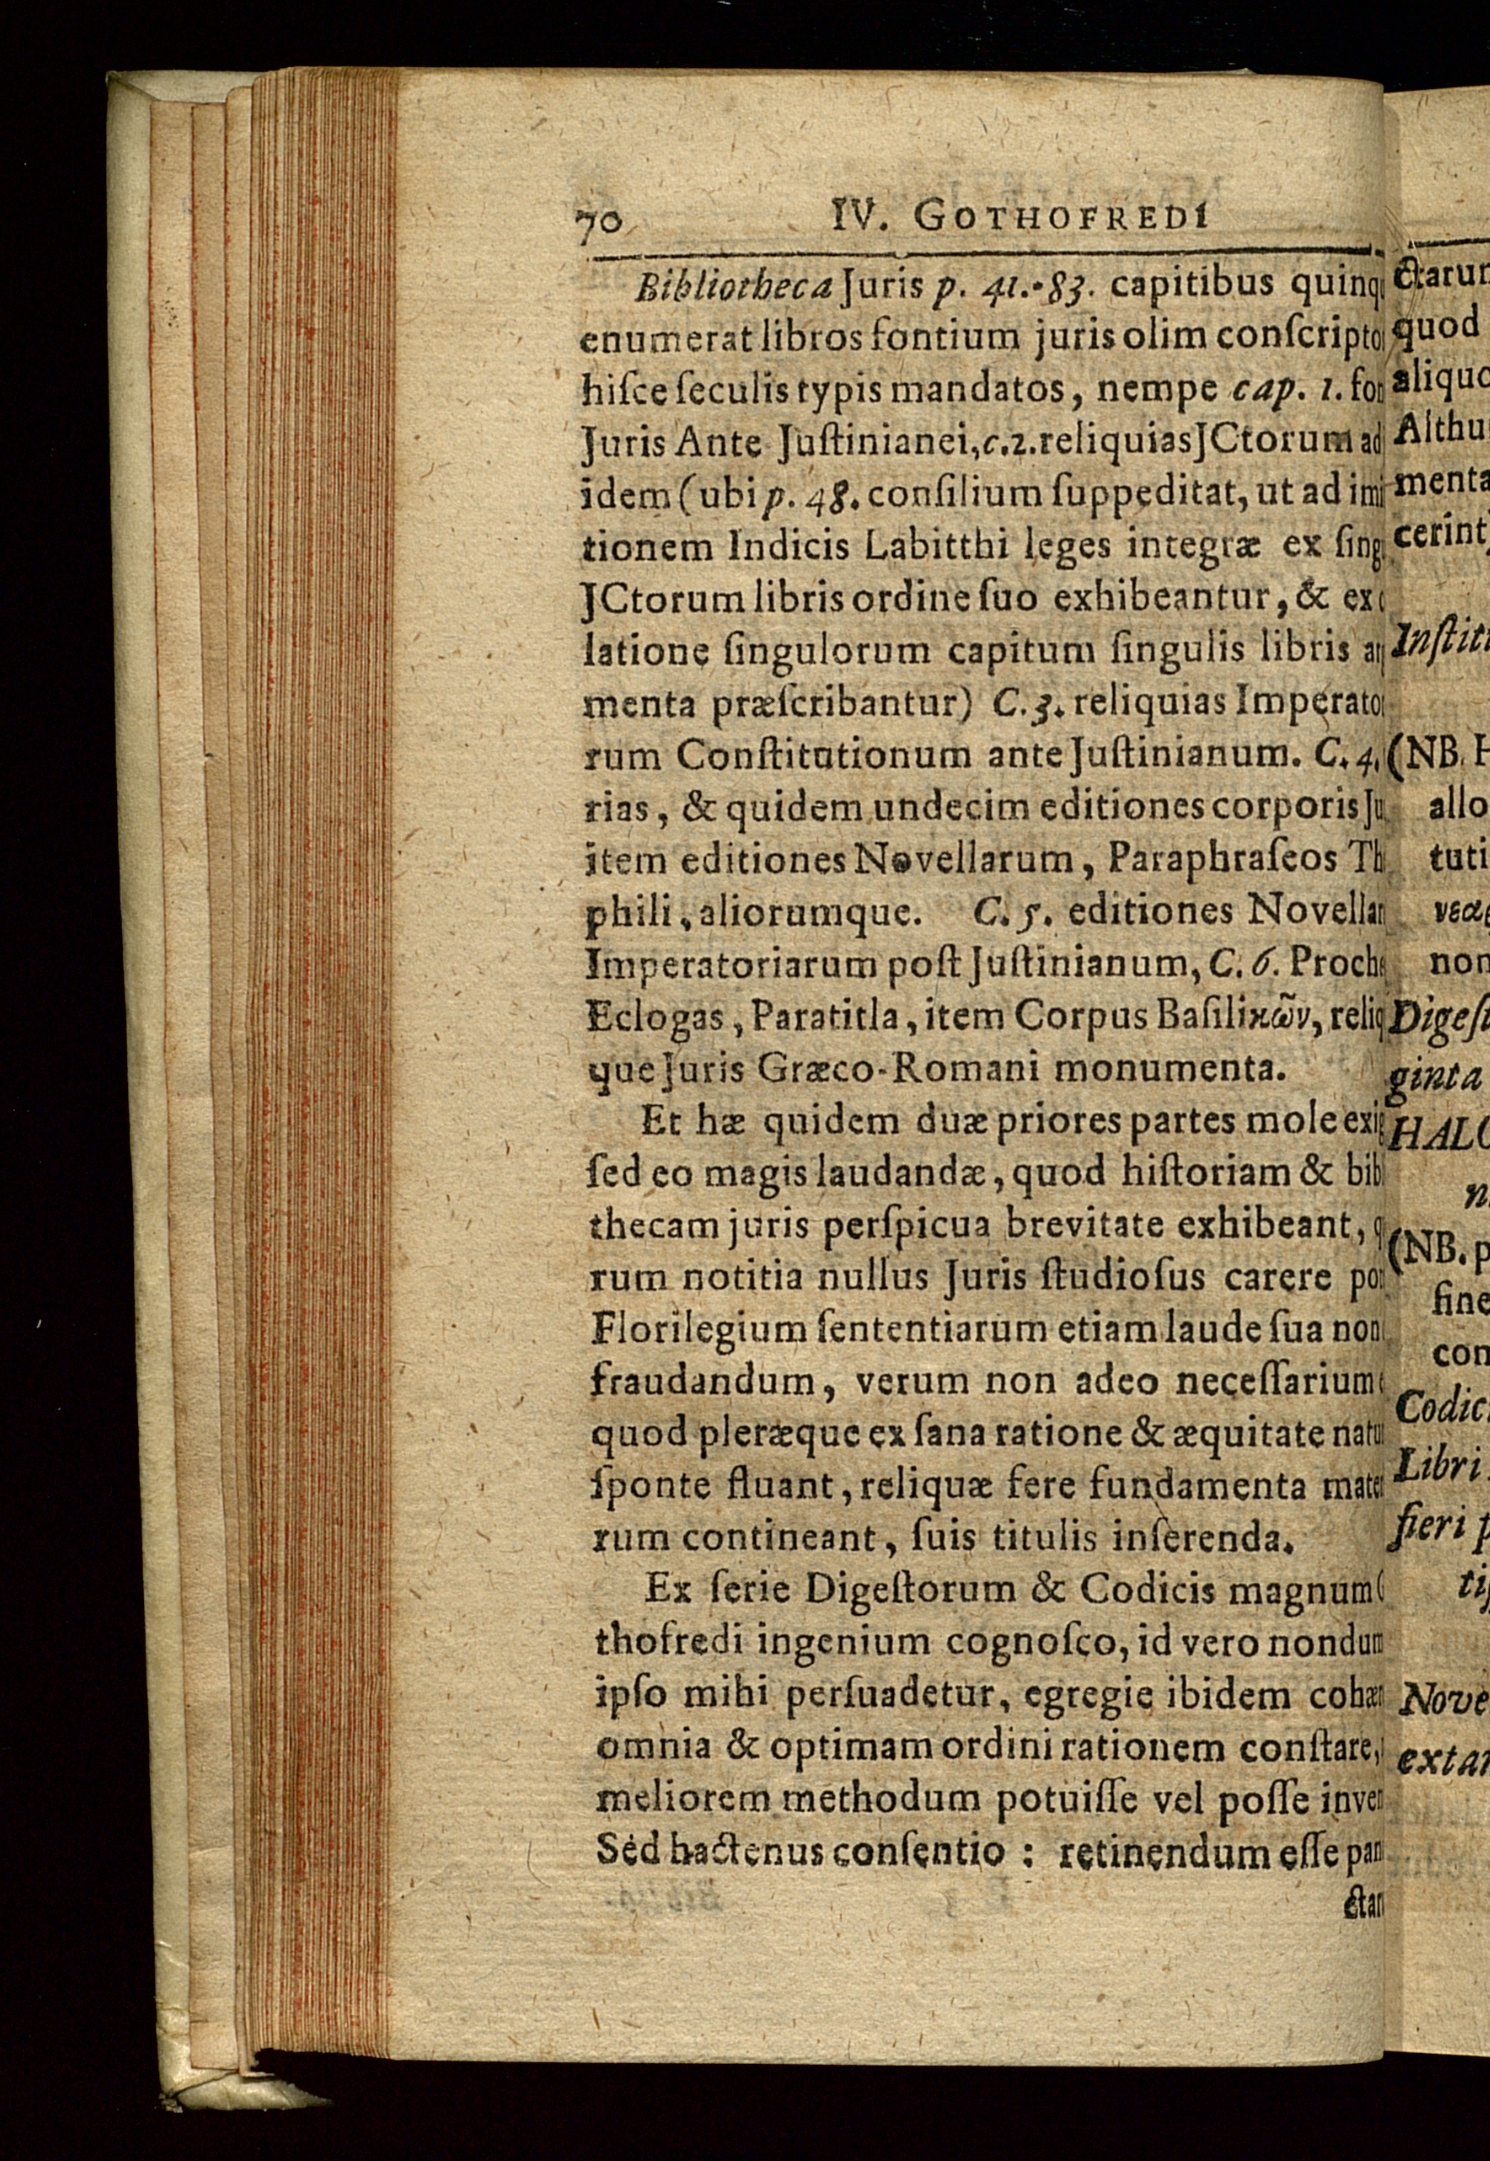 70 IV. GOTHOFREDI
Bibliotheca Juris p. 41.-83. capitibus
enumerat libros fontium juris olim conſcripto
hiſce ſeculis typis mandatos, nempe cap. 1. fon
Juris Ante Juſtinianei, c. 2. reliquias JCtorum ad
idem (ubi p. 48. conſilium ſuppeditat, ut ad imi
tionem Indicis Labitthi leges integræ ex ſing
JCtorum libris ordine ſuo exhibeantur, & ex
latione ſingulorum capitum ſingulis libris
menta præſcribantur) C. 3. reliquias Imperato
rum Conſtitutionum ante Juſtinianum. C. 4.
rias, & quidem undecim editiones corporis Ju
item editiones Novellarum, Paraphraſeos Th
phili, aliorumque. C. 5. editiones Novellar
Imperatoriarum poſt Juſtinianum, C. 6. Proche
Eclogas, Paratitla, item Corpus Baſiliκῶν, reliq
que Juris Græco-Romani monumenta.
Et hæ quidem duæ priores partes mole exig
ſed eo magis laudandæ, quod hiſtoriam & bibl
thecam juris perſpicua brevitate exhibeant, q
rum notitia nullus Juris ſtudioſus carere
Florilegium ſententiarum etiam laude ſua non
fraudandum, verum non adeo neceſſarium
quod pleræque ex ſana ratione & æquitate natu
ſponte fluant, reliquæ fere fundamenta mate
rum contineant, ſuis titulis inſerenda.
Ex ſerie Digeſtorum & Codicis magnum
thofredi ingenium cognoſco, id vero nondum
ipſo mihi perſuadetur, egregie ibidem cohær
omnia & optimam ordini rationem conſtare,
meliorem methodum potuiſſe vel poſſe inven
Sed hactenus conſentio : retinendum eſſe pan
ctar
ctarum
quod
aliquo
Althu
menta
cerint
Inſtitu
(NB. H
allo
tuti
νεα
non
Digeſt
ginta
HALO
n
(NB. p
fine
con
Codic
Libri
fieri p
tiſ
Nove
extan